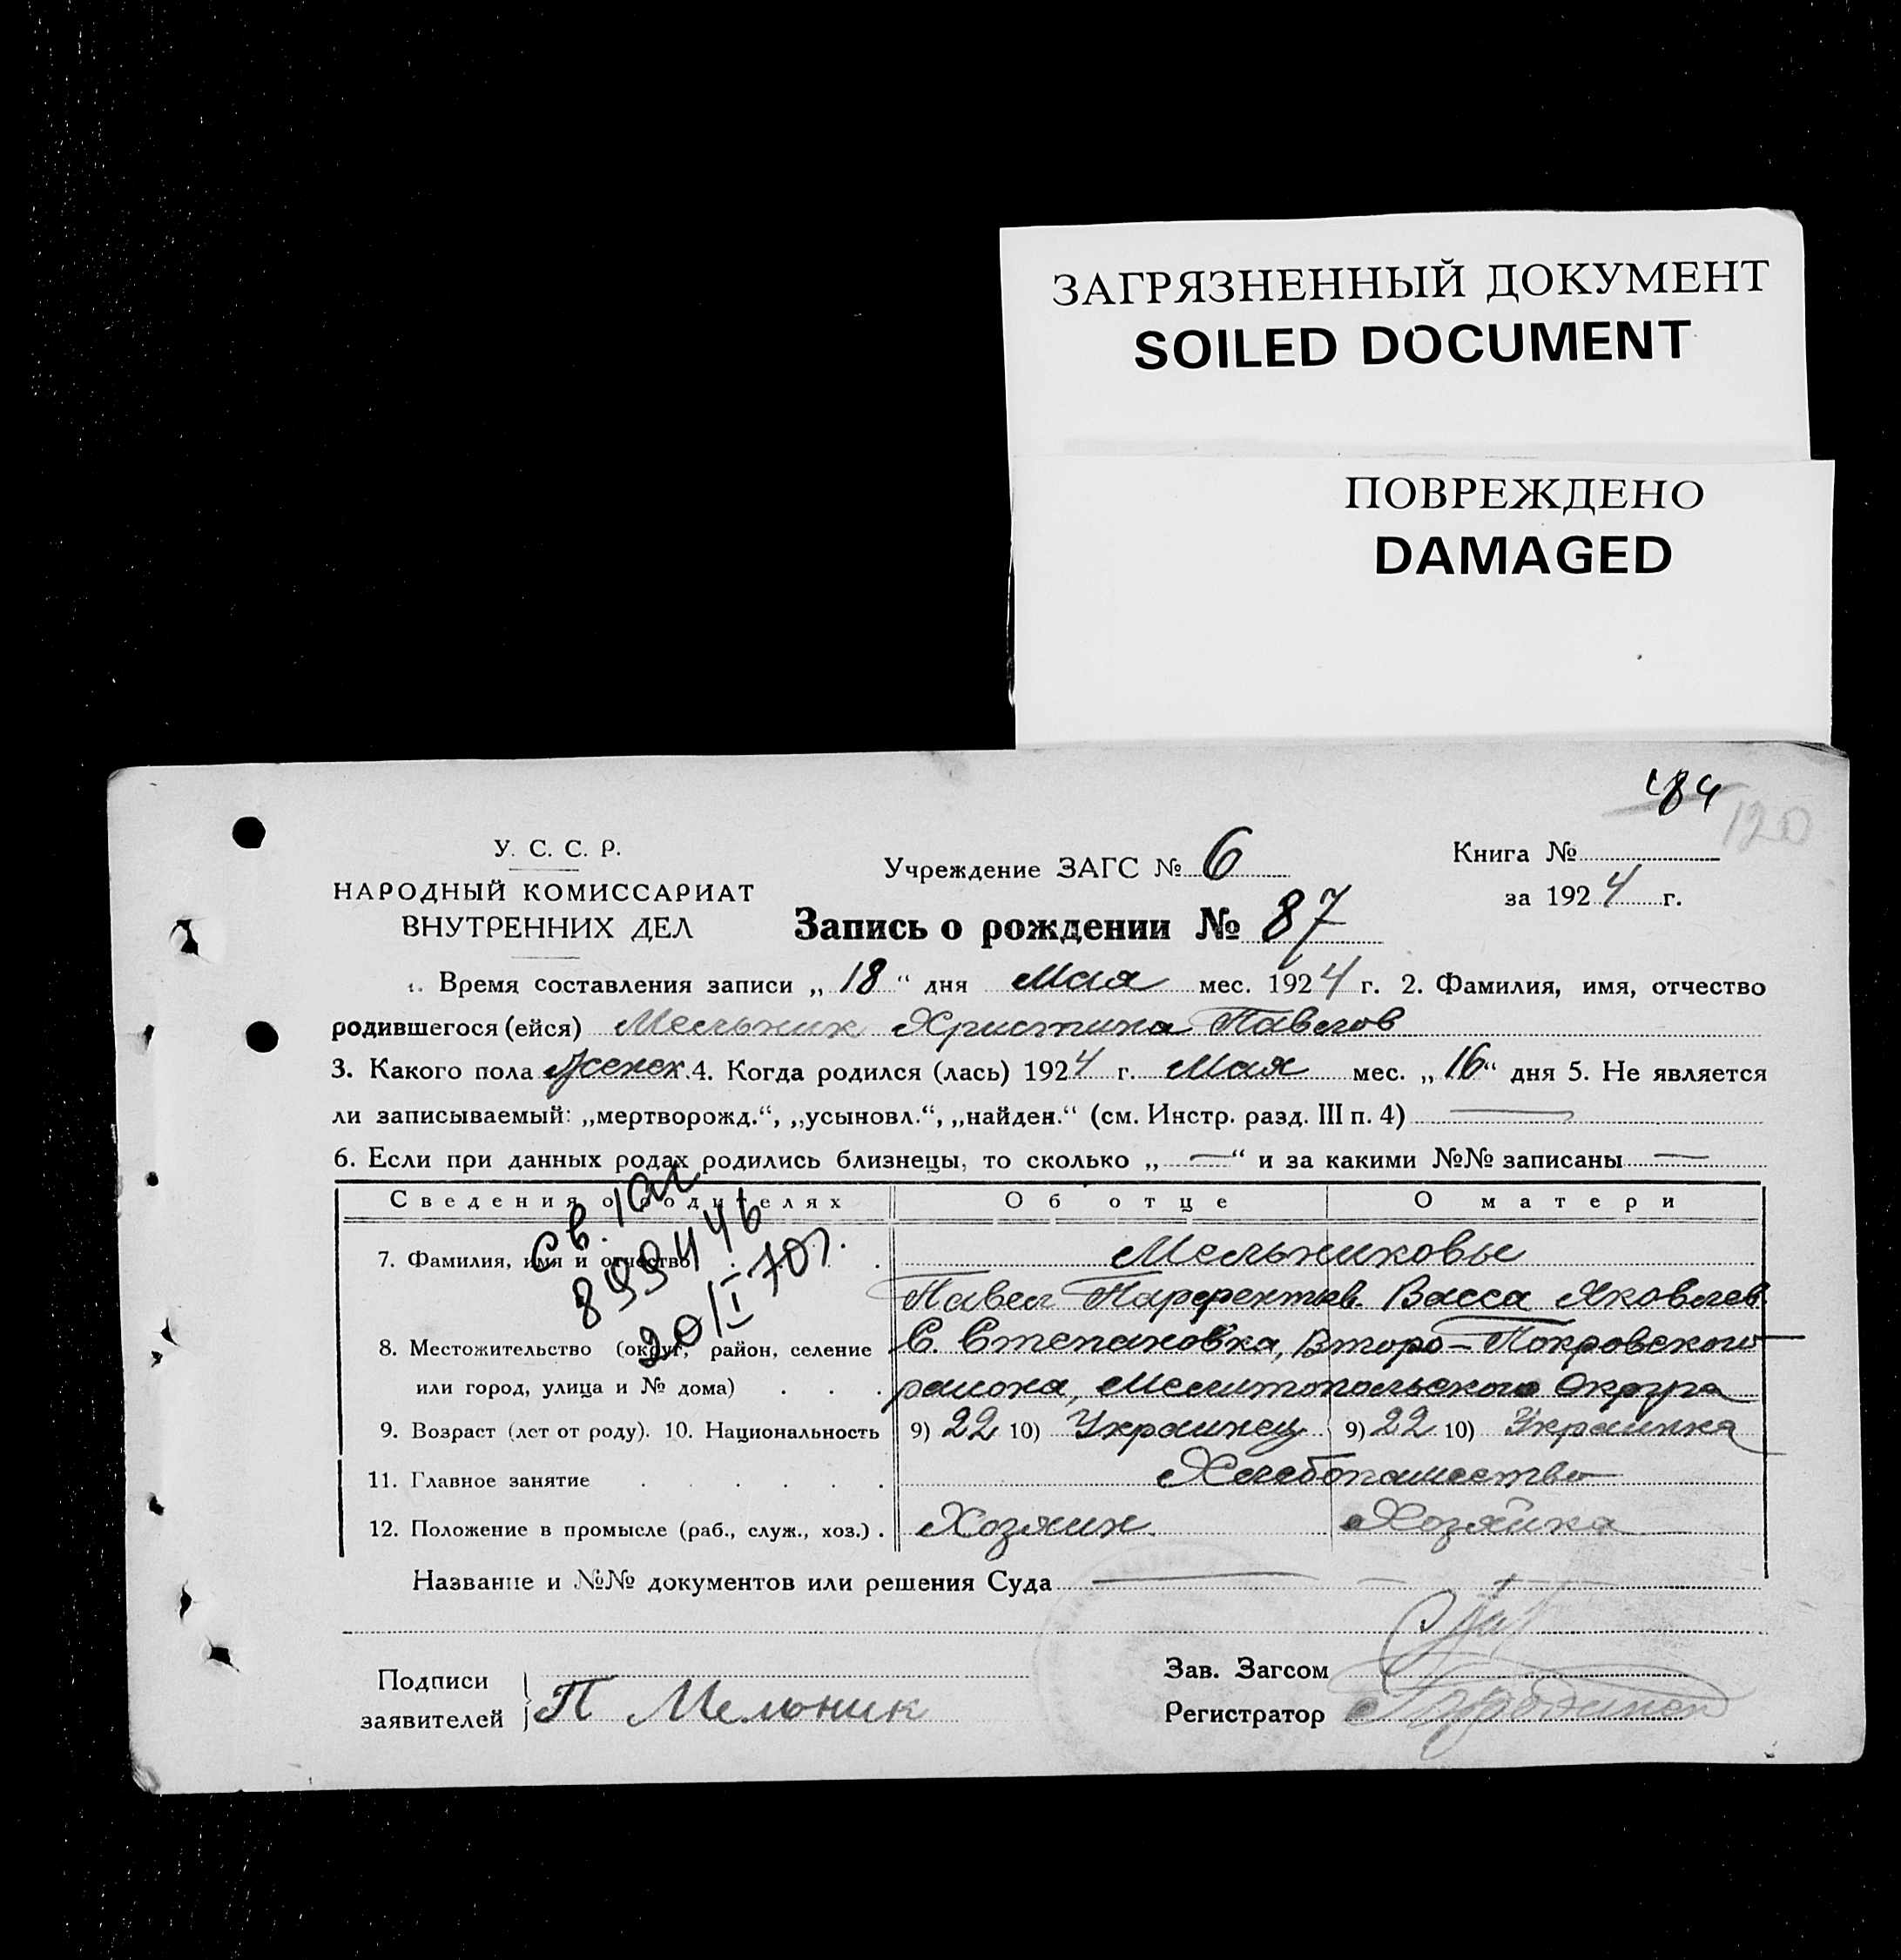 ЗАГРЯЗНЕННЫЙ ДОКУМЕНТ
SOILED DOCUMENT
ПОВРЕЖДЕНО
DAMAGED
184
120
У. С. С. Р.
НАРОДНЫЙ КОМИССАРИАТ
ВНУТРЕННИХ ДЕЛ
Учреждение ЗАГС № 6
Книга №
за 1924 г.
Запись о рождении № 87
1. Время составления записи „18“ дня Мая мес. 1924 г. 2. Фамилия, имя, отчество
родившегося (ейся) Мельник Христина Павлов
3. Какого пола женск. 4. Когда родился (лась) 1924 г. Мая мес. „16“ дня 5. Не является
ли записываемый: „мертворожд.“, „усыновл.“, „найден.“ (см. Инстр. разд. III п. 4) —
6. Если при данных родах родились близнецы, то сколько „—“ и за какими №№ записаны —
Сведения о родителях Об отце О матери
7. Фамилия, имя и отчество Мельниковы
Павел Парфентьев. Васса Яковлев.
8. Местожительство (округ, район, селение С. Степановка, Второ-Покровского
или город, улица и № дома) района, Мелитопольского Округа
9. Возраст (лет от роду). 10. Национальность 9) 22 10) Украинец 9) 22 10) Украинка
11. Главное занятие Хлебопашество
12. Положение в промысле (раб., служ., хоз.) Хозяин Хозяйка
Св.
899446
20/I 70г.
Название и №№ документов или решения Суда —
Подписи
заявителей П Мельник
Зав. Загсом
Регистратор